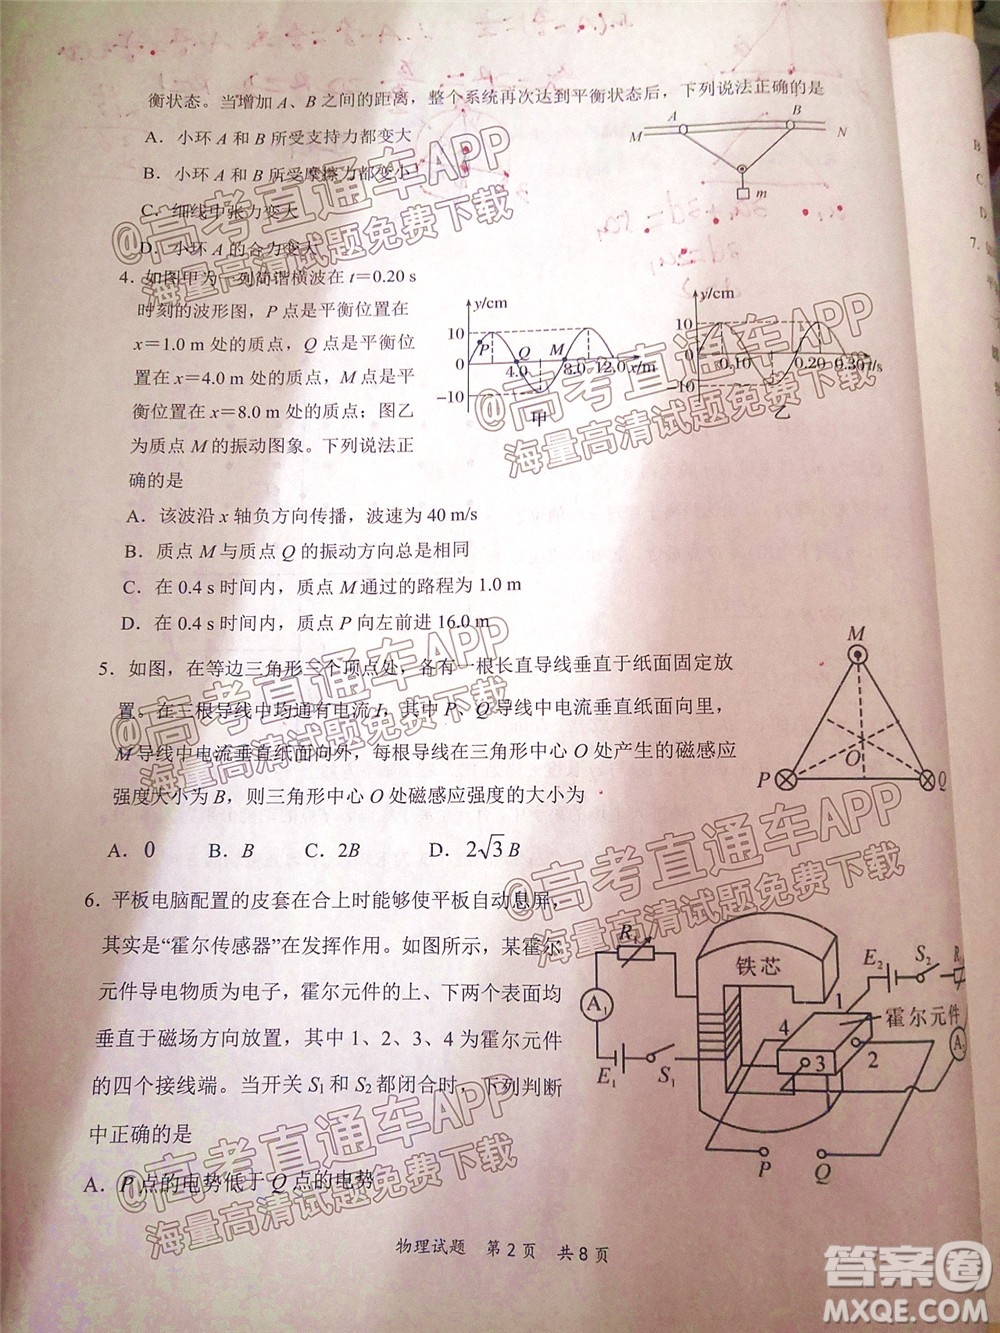 衡状态。当增加 A、B 之间的距离，整个系统再次达到平衡状态后，下列说法正确的是
A．小环 A 和 B 所受支持力都变大
B．小环 A 和 B 所受摩擦力都变小
C．细线中张力变大
D．小环 A 的合力变大
M A B N
m
4．如图甲为一列简谐横波在 t＝0.20 s
时刻的波形图，P 点是平衡位置在
x＝1.0 m 处的质点，Q 点是平衡位
置在 x＝4.0 m 处的质点，M 点是平
衡位置在 x＝8.0 m 处的质点；图乙
为质点 M 的振动图象。下列说法正
确的是
y/cm
10
P Q M
4.0 8.0 12.0 x/m
−10
甲
y/cm
10
0.10 0.20 0.30 t/s
−10
乙
A．该波沿 x 轴负方向传播，波速为 40 m/s
B．质点 M 与质点 Q 的振动方向总是相同
C．在 0.4 s 时间内，质点 M 通过的路程为 1.0 m
D．在 0.4 s 时间内，质点 P 向左前进 16.0 m
5．如图，在等边三角形三个顶点处，各有一根长直导线垂直于纸面固定放
置。在三根导线中均通有电流 I，其中 P、Q 导线中电流垂直纸面向里，
M 导线中电流垂直纸面向外，每根导线在三角形中心 O 处产生的磁感应
强度大小为 B，则三角形中心 O 处磁感应强度的大小为
M
O
P Q
A．0 B．B C．2B D．2√3 B
6．平板电脑配置的皮套在合上时能够使平板自动息屏，
其实是“霍尔传感器”在发挥作用。如图所示，某霍尔
元件导电物质为电子，霍尔元件的上、下两个表面均
垂直于磁场方向放置，其中 1、2、3、4 为霍尔元件
的四个接线端。当开关 S1 和 S2 都闭合时，下列判断
中正确的是
A．P 点的电势低于 Q 点的电势
铁芯
E2 S2
A1
1
霍尔元件
4
2
3
E1 S1
P Q
物理试题 第 2 页 共 8 页
@高考直通车APP
海量高清试题免费下载
@高考直通车APP
海量高清试题免费下载
@高考直通车APP
海量高清试题免费下载
@高考直通车APP
海量高清试题免费下载
@高考直通车APP
海量高清试题免费下载
答案圈
MXQE.COM